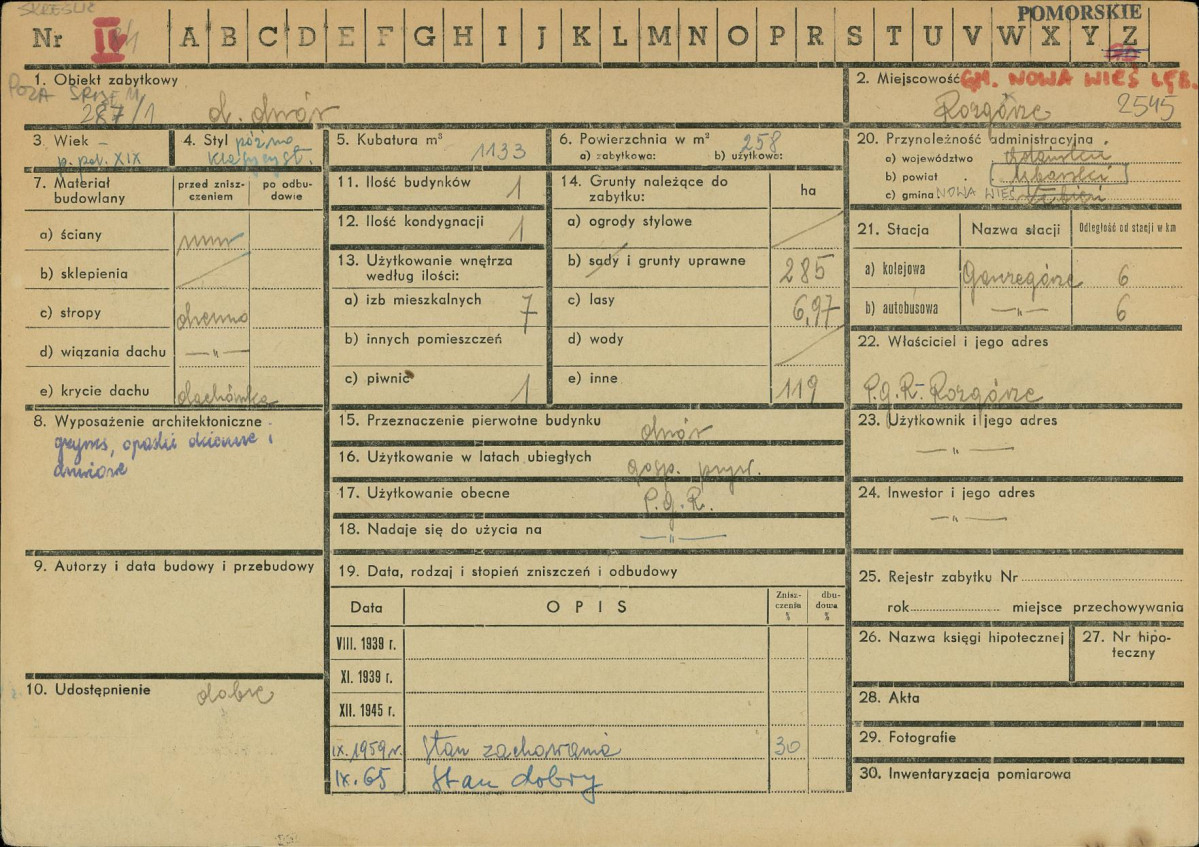 SKREŚLIĆ
POMORSKIE
Nr IV A B C D E F G H I J K L M N O P R S T U V W X Y Z
1. Obiekt zabytkowy
POZA
287/1 d. dwór
2. Miejscowość GM. NOWA WIEŚ LĘB.
Rozgórze 2545
3. Wiek –
p. poł. XIX
4. Styl późno
klasycyst.
5. Kubatura m³
1133
6. Powierzchnia w m² 258
a) zabytkowa: b) użytkowa:
7. Materiał budowlany
przed zniszczeniem
po odbudowie
a) ściany mur
b) sklepienia
c) stropy drewno
d) wiązania dachu —"—
e) krycie dachu dachówka
8. Wyposażenie architektoniczne
gzyms, opaski okienne i
drzwiowe
9. Autorzy i data budowy i przebudowy
10. Udostępnienie dobre
11. Ilość budynków 1
12. Ilość kondygnacji 1
13. Użytkowanie wnętrza
według ilości:
a) izb mieszkalnych 7
b) innych pomieszczeń
c) piwnic 1
14. Grunty należące do
zabytku:
ha
a) ogrody stylowe
b) sady i grunty uprawne 285
c) lasy 6,97
d) wody
e) inne 119
15. Przeznaczenie pierwotne budynku dwór
16. Użytkowanie w latach ubiegłych gosp. pryw.
17. Użytkowanie obecne P.g.R.
18. Nadaje się do użycia na —"—
19. Data, rodzaj i stopień zniszczeń i odbudowy
Data OPIS Zniszczenia % dbudowa %
VIII. 1939 r.
XI. 1939 r.
XII. 1945 r.
IX.1959r. Stan zachowania 30
IX.65 Stan dobry
20. Przynależność administracyjna
a) województwo
b) powiat
c) gmina NOWA WIEŚ
21. Stacja Nazwa stacji Odległość od stacji w km
a) kolejowa 6
b) autobusowa —"— 6
22. Właściciel i jego adres
P.g.R – Rozgórze
23. Użytkownik i jego adres
—"—
24. Inwestor i jego adres
—"—
25. Rejestr zabytku Nr
rok miejsce przechowywania
26. Nazwa księgi hipotecznej
27. Nr hipoteczny
28. Akta
29. Fotografie
30. Inwentaryzacja pomiarowa